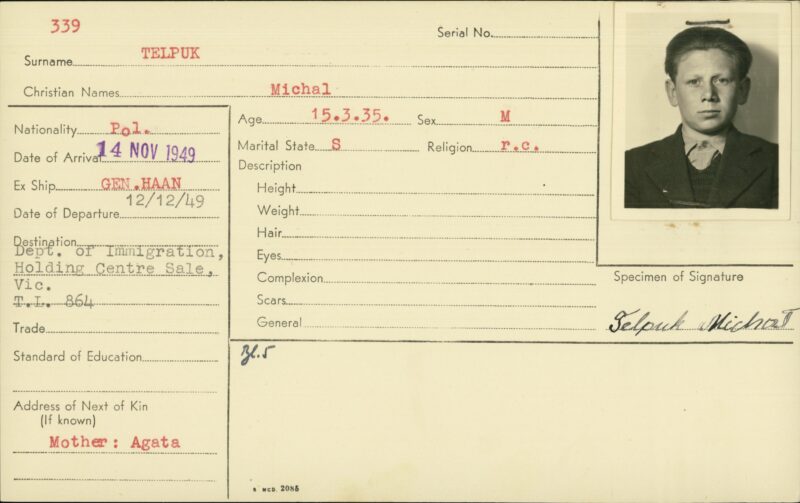 339
Serial No.
Surname TELPUK
Christian Names Michal
Nationality Pol.
Date of Arrival 14 NOV 1949
Ex Ship GEN.HAAN
12/12/49
Date of Departure
Destination
Dept. of Immigration,
Holding Centre Sale,
Vic.
T.L. 864
Trade
Standard of Education
Address of Next of Kin
(If known)
Mother: Agata
Age 15.3.35. Sex M
Marital State S Religion r.c.
Description
Height
Weight
Hair
Eyes
Complexion
Scars
General
Specimen of Signature
Telpuk Michał
Bl.5
2085